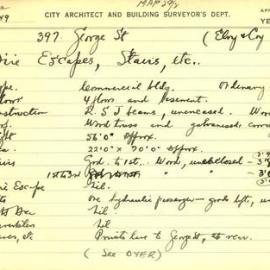 MAP 29
CITY ARCHITECT AND BUILDING SURVEYOR'S DEPT.
49
YE
397 George St (Eloy & Coy
Fire Escapes, Stairs, etc.
Commercial bldg. Ordinary
4 floors and Basement.
struction R.S.J beams, unencased. Wood
Wood truss and galvanised, corr
56' 0" Approx.
22' 0" x 70' 0" Approx.
Grd. to 1st. Wood, unenclosed 3'
1st to 3rd 3'
re Escape Nil.
One hydraulic passenger - goods lift,
Nil
Nil
Private lane to George St, to rear.
(See DYER)